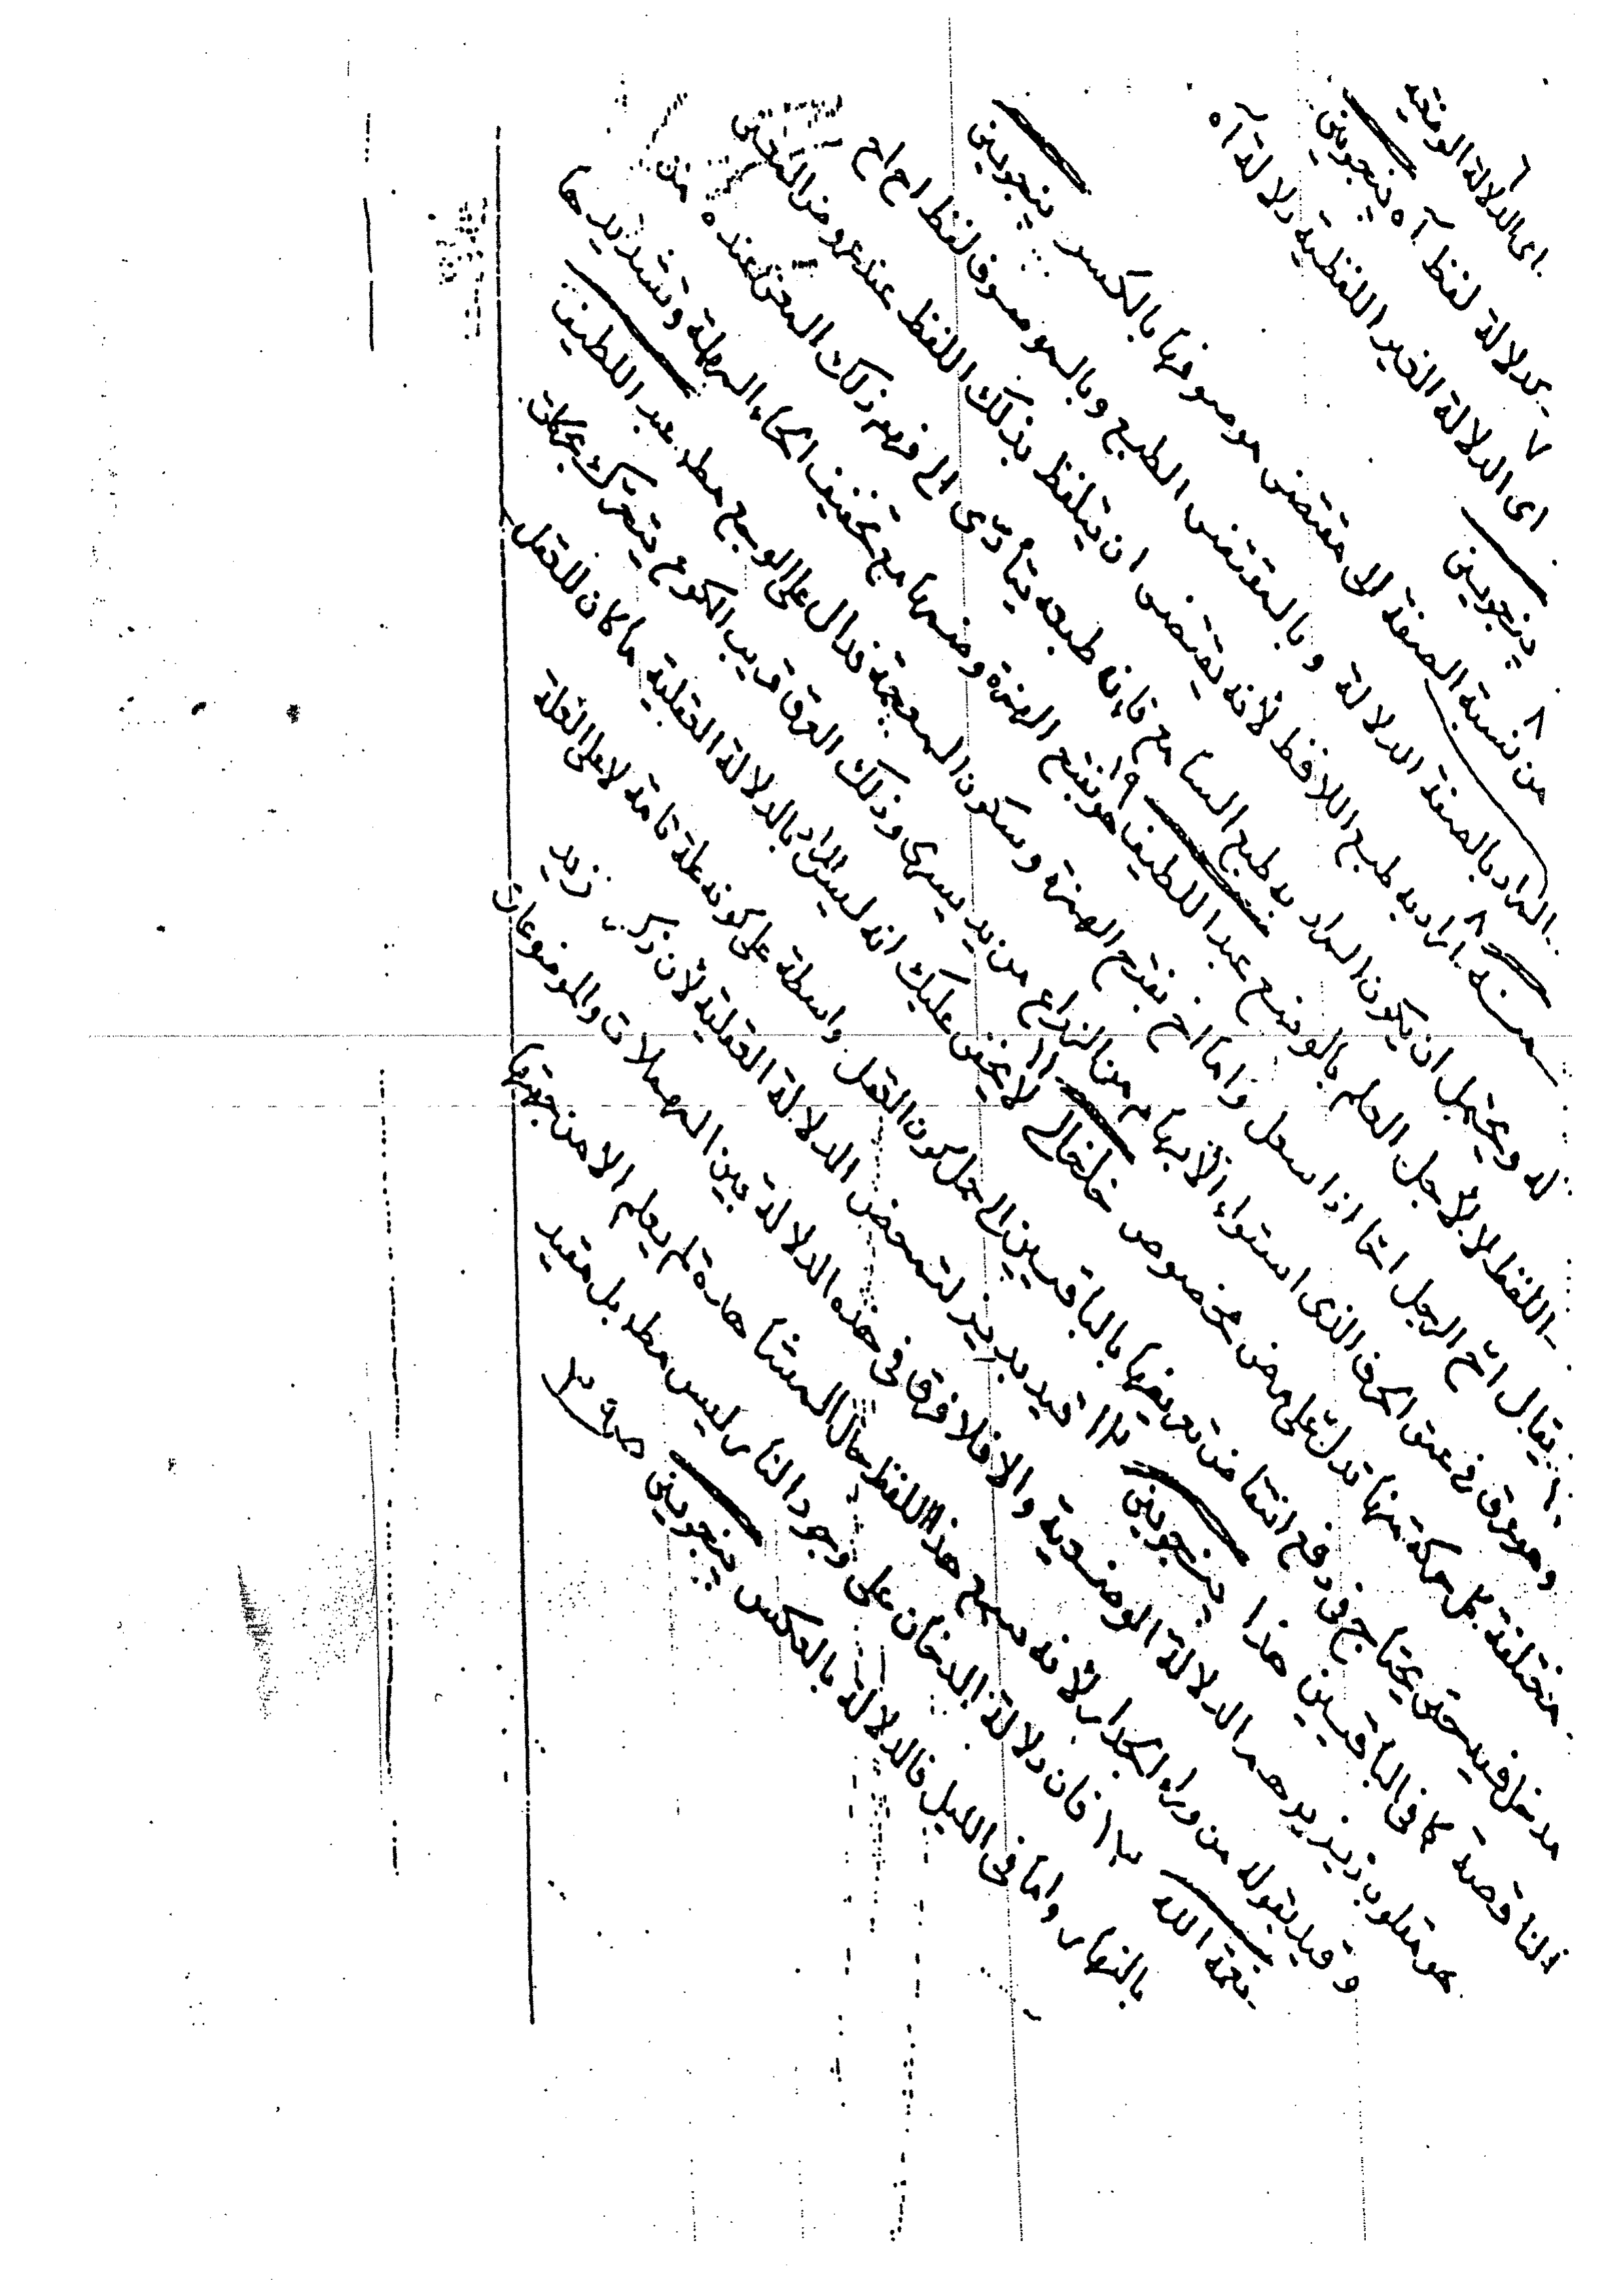 ٦ اى الدلالة الوضعية
كدلالة لفظ آه پنجوينى
٧ اى الدلالة الغير اللفظية دلالة آه
پنجوينى
٨ من نسبة الصفة الى مقتضى موصوفها بالكسر پنجوينى
المراد بالصفة الدلالة وبالمقتضى الطبع وبالموصوف لفظ اح اح
٨ اراد به طبع اللافظ لأنه يقتضى ان يتلفظ بذلك اللفظ عند عروض المعنى
له ويحتمل ان يكون المراد به طبع السامع فإن طبعه يتأدى الى فهم ذلك المعنى عنده
اللفظ لا لأجل العلم بالوضع عبد اللطيف ٩ هو بفتح الهمزة وضمها مع تخفيف الحاء المهملة وتشديدها
يقال احّ الرجل احّا اذا سعل واما اخ بفتح الهمزة وسكون المعجمة فدال على الوجع مط عبد اللطيف
١٠ وهو عرق فى عنق الحرف الذى استواء الأبهام من الذراع من يد يسرى وذلك العرق قريب الكوع يتحرك بحركات
مختلفة كل حركة منها تدل على مرض مخصوص خلخالى ١١ لا يخفى عليك انه ليس المراد بالدلالة العقلية ما كان للعقل
مدخل فيه حتى يحتاج فى دفع انتقاض تعريفها بالباقيين الى جعل كون العقل واسطة على كونه علة تامة لا على العلة
الناقصة كما فى الباقيين هذا پنجوينى ١٢ قيد بديز لتمحض الدلالة العقلية لأن ذكر زيد
هو مقلوب زيد يزيدهم الدلالة الوضعية والا فلا فرق فى هذه الدلالة بين المهملات والموضوعات
وقيد بقوله من وراء الجدار لأنه سمع هذا اللفظ حال المشاهدة لم يعلم الا من جهتها
نعمة الله ١٣ فان دلالة الدخان على وجود النار ليس مط بل مقيد
بالنهار واما فى الليل فالدلالة بالعكس پنجوينى